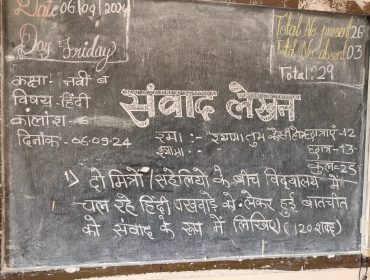 Date 06/09/2024
Day Friday
Total No. present 26
Total No. absent 03
Total: 29
कक्षा - नवीं ब
विषय - हिंदी
कालांश - 6
दिनांक - 06-09-24
संवाद लेखन
रमा :-
श्यामा :-
छात्राएँ - 12
छात्र - 13
कुल = 25
1) दो मित्रों / सहेलियों के बीच विद्यालय में
चल रहे हिंदी पखवाड़े को लेकर हुई बातचीत
को संवाद के रूप में लिखिए। (120 शब्द)